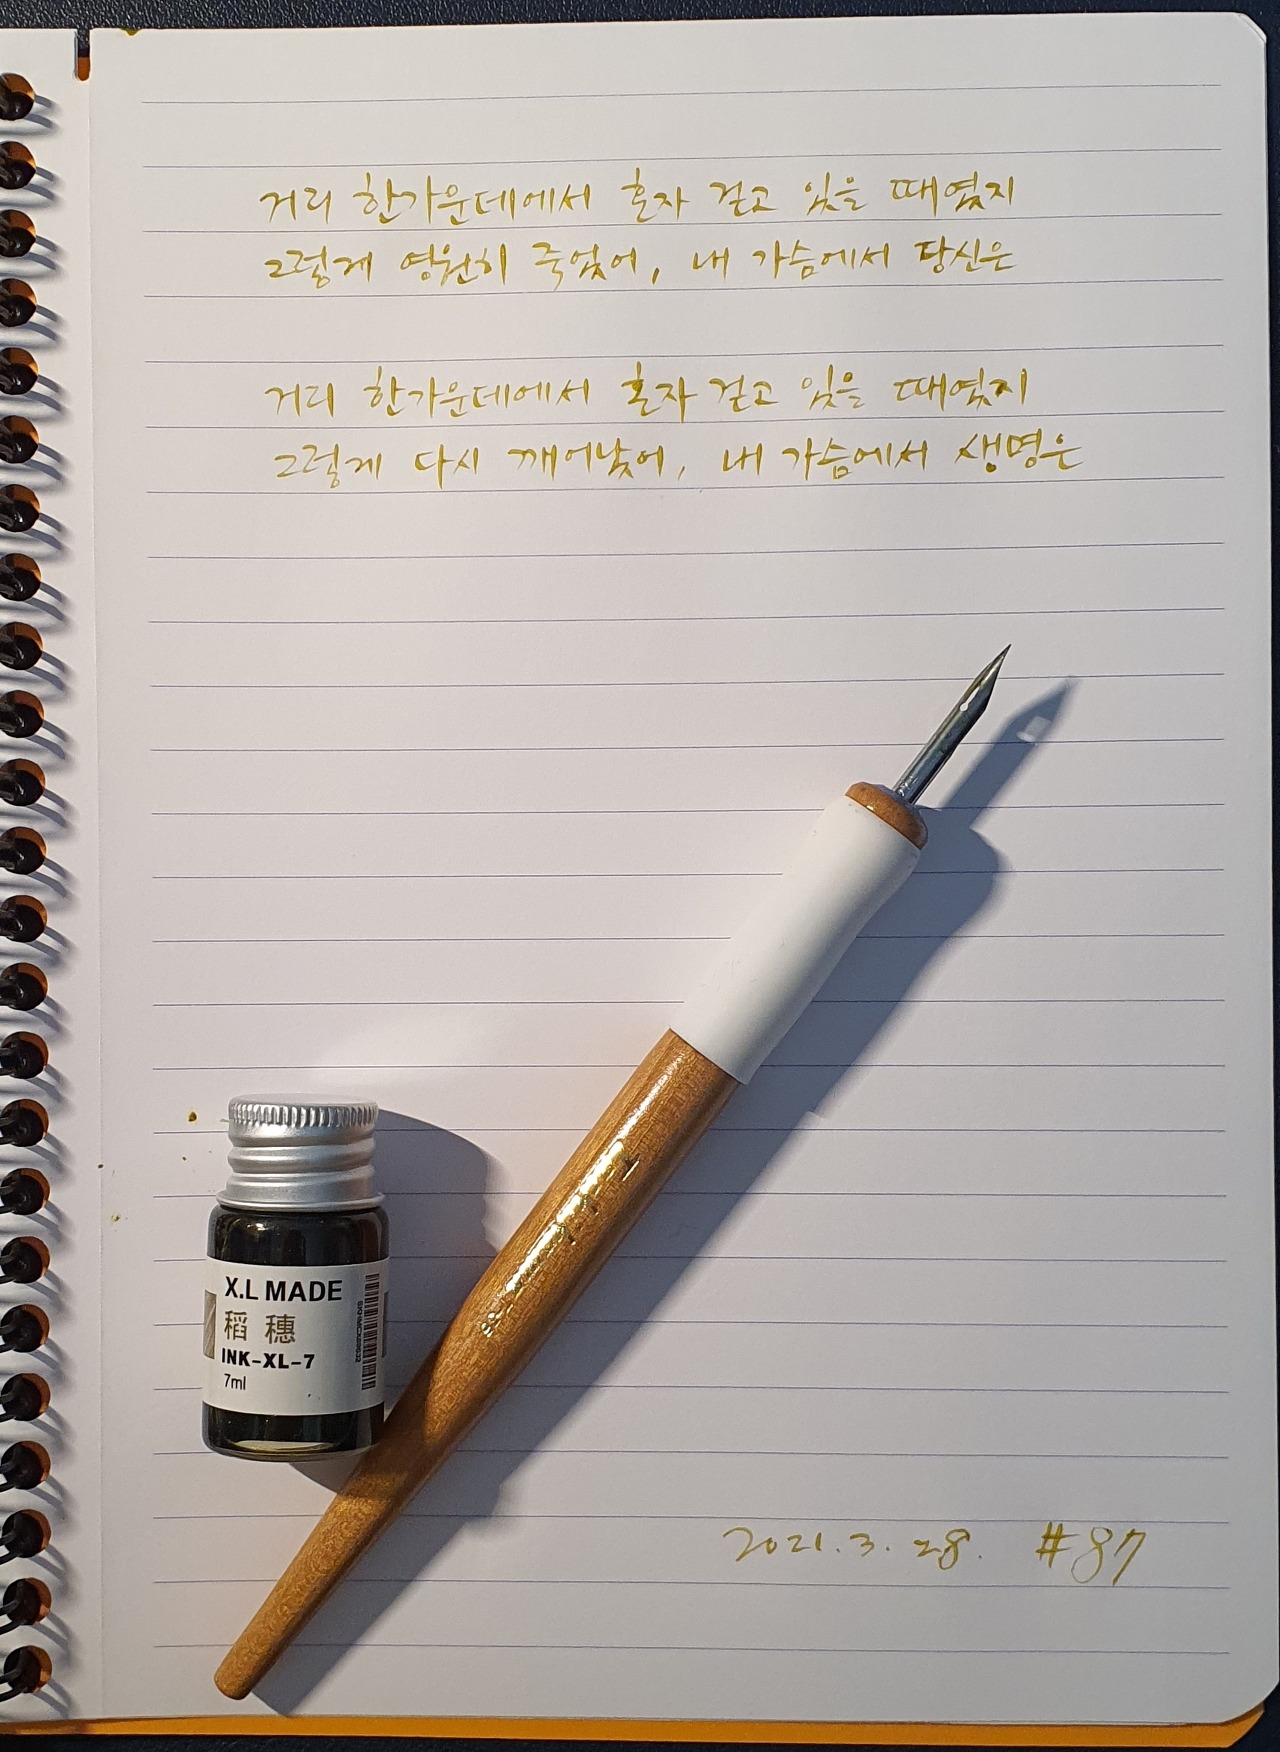 거리 한가운데에서 혼자 걷고 있을 때였지
그렇게 영원히 죽었어, 내 가슴에서 당신은
거리 한가운데에서 혼자 걷고 있을 때였지
그렇게 다시 깨어났어, 내 가슴에서 생명은
X.L MADE
稻穗
INK-XL-7
7ml
2021.3.28. #87